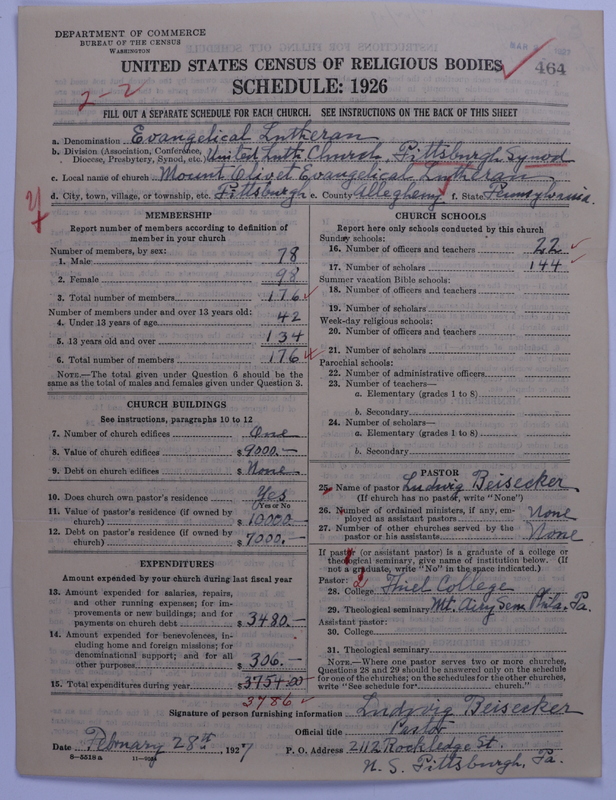 DEPARTMENT OF COMMERCE
BUREAU OF THE CENSUS
WASHINGTON
UNITED STATES CENSUS OF RELIGIOUS BODIES
464
SCHEDULE: 1926
2-2
FILL OUT A SEPARATE SCHEDULE FOR EACH CHURCH. SEE INSTRUCTIONS ON THE BACK OF THIS SHEET
a. Denomination Evangelical Lutheran
b. Division (Association, Conference, Diocese, Presbytery, Synod, etc.) United Luth. Church, Pittsburgh Synod
c. Local name of church Mount Olivet Evangelical Lutheran
d. City, town, village, or township, etc. Pittsburgh e. County Allegheny f. State Pennsylvania.
MEMBERSHIP
Report number of members according to definition of
member in your church
Number of members, by sex:
1. Male 78
2. Female 98
3. Total number of members 176
Number of members under and over 13 years old:
4. Under 13 years of age 42
5. 13 years old and over 134
6. Total number of members 176
NOTE.—The total given under Question 6 should be
same as the total of males and females given under Question 3.
CHURCH BUILDINGS
See instructions, paragraphs 10 to 12
7. Number of church edifices One
8. Value of church edifices $ 9000.—
9. Debt on church edifices $ None
10. Does church own pastor's residence Yes
(Yes or No
11. Value of pastor's residence (if owned by
church) $ 10000.—
12. Debt on pastor's residence (if owned by
church) $ 7000.—
EXPENDITURES
Amount expended by your church during last fiscal year
13. Amount expended for salaries, repairs,
and other running expenses; for im-
provements or new buildings; and for
payments on church debt $ 3480.—
14. Amount expended for benevolences, in-
cluding home and foreign missions; for
denominational support; and for all
other purposes $ 306.—
15. Total expenditures during year $ 3754.00
3786
CHURCH SCHOOLS
Report here only schools conducted by this church
Sunday schools:
16. Number of officers and teachers 22
17. Number of scholars 144
Summer vacation Bible schools:
18. Number of officers and teachers
19. Number of scholars
Week-day religious schools:
20. Number of officers and teachers
21. Number of scholars
Parochial schools:
22. Number of administrative officers
23. Number of teachers—
a. Elementary (grades 1 to 8)
b. Secondary
24. Number of scholars—
a. Elementary (grades 1 to 8)
b. Secondary
PASTOR
25. Name of pastor Ludwig Beisecker
(If church has no pastor, write "None")
26. Number of ordained ministers, if any, em-
ployed as assistant pastors None
27. Number of other churches served by the
pastor or his assistants None
If pastor (or assistant pastor) is a graduate of a college or
theological seminary, give name of institution below. (If
not a graduate, write "No" in the space indicated.)
Pastor:
28. College Thiel College
29. Theological seminary Mt. Airy Sem. Phila, Pa.
Assistant pastor:
30. College
31. Theological seminary
NOTE.—Where one pastor serves two or more churches,
Questions 28 and 29 should be answered only on the schedule
for one of the churches; on the schedules for the other churches,
write "See schedule for church."
Signature of person furnishing information Ludwig Beisecker
Official title Pastor
Date February 28th, 1927 P. O. Address 2112 Rockledge St.
N. S. Pittsburgh, Pa.
8-5518 a